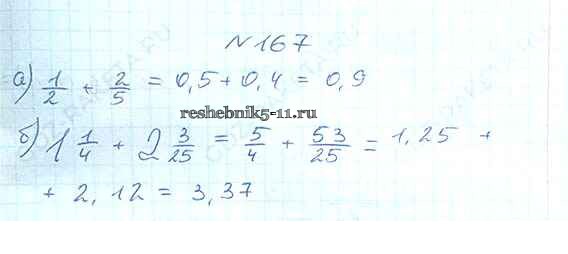 №167
а) 1/2 + 2/5 = 0,5 + 0,4 = 0,9
reshebnik5-11.ru
б) 1 1/4 + 2 3/25 = 5/4 + 53/25 = 1,25 +
+ 2,12 = 3,37